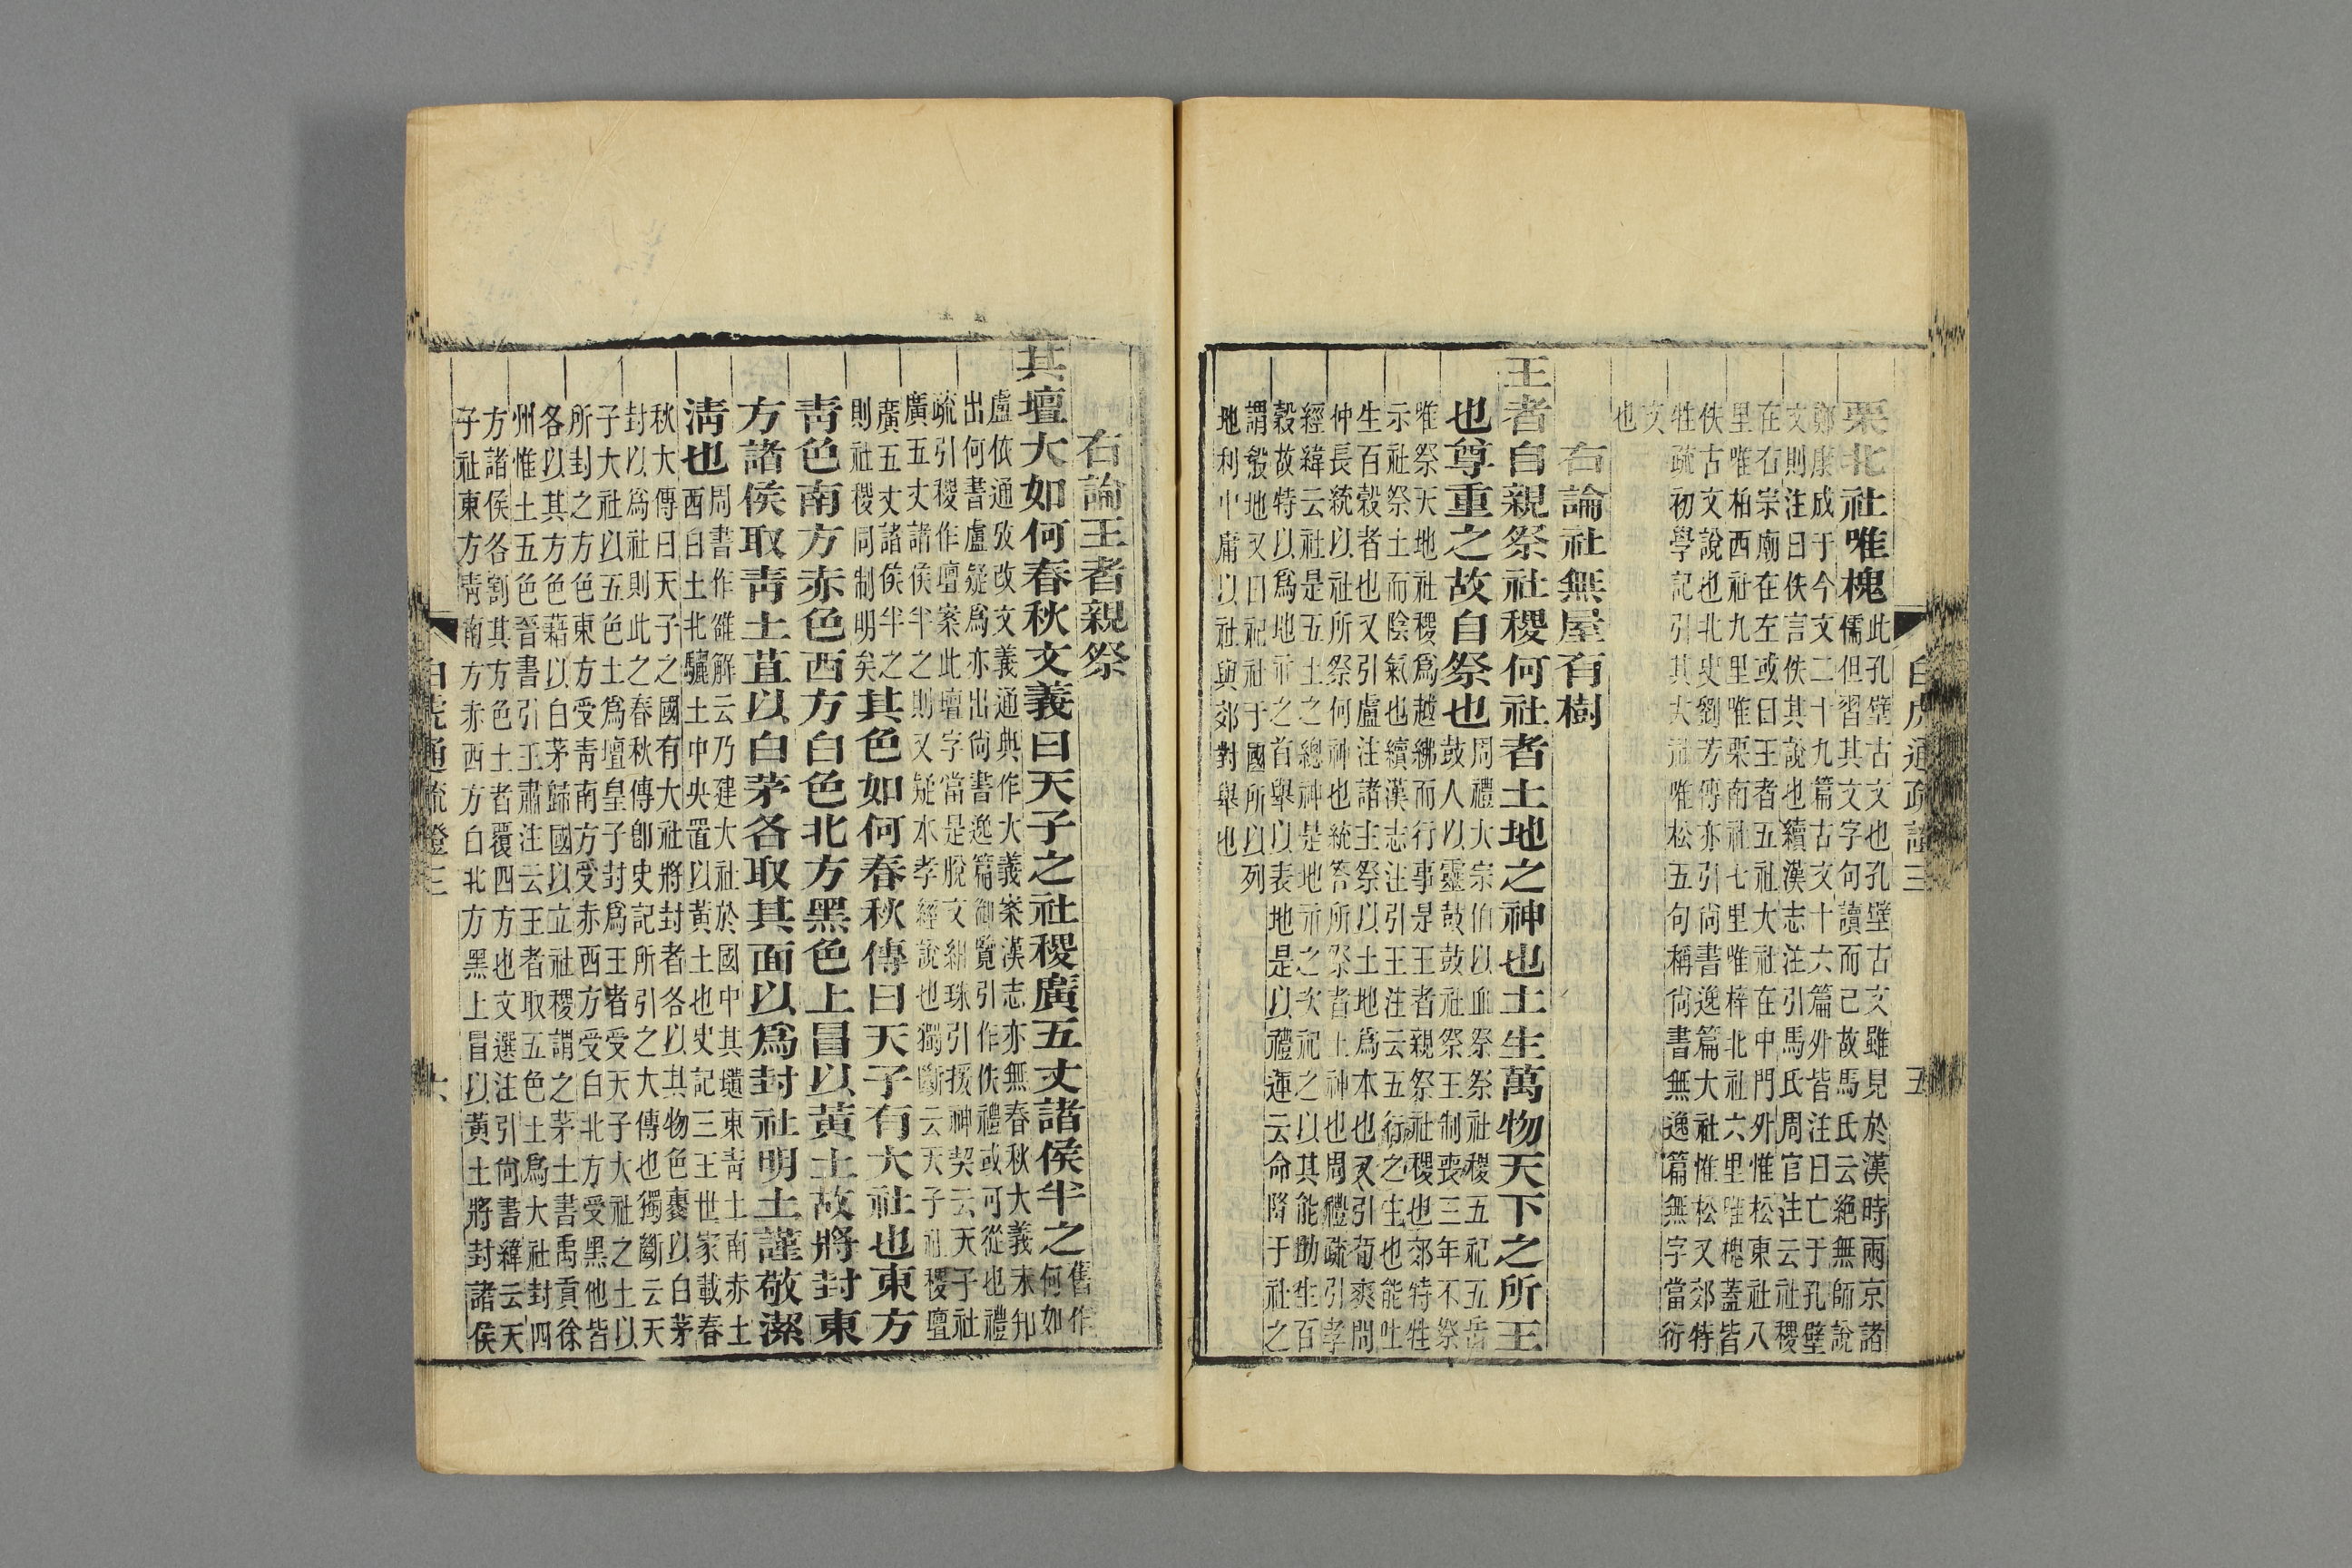 白虎通疏證三 五
栗北社唯槐
此孔壁古文也孔壁古文雖見於漢時兩京諸
儒但習其文字句讀而已故馬氏云絕無師說
鄭康成于今文二十九篇古文十六篇外皆注曰亡于孔壁
文則注曰佚言佚其說也續漢志注引馬氏周官注云社稷
在右宗廟在左或曰王者五社大社在中門外惟松東社八
里唯柏西社九里唯栗南社七里唯梓北社六里唯槐蓋皆
佚古文說也北史劉芳傳亦引尙書逸篇大社惟松又郊特
牲疏初學記引其大社唯松五句稱尙書無逸篇無字當衍
文
也
右論社無屋有樹
王者自親祭社稷何社者土地之神也土生萬物天下之所王
也尊重之故自祭也
周禮大宗伯以血祭祭社稷五祀五岳
鼓人以靈鼓鼓社祭王制喪三年不祭
唯祭天地社稷爲越紼而行事是王者親祭社稷也郊特牲
示社祭土而陰氣也續漢志注引王注云五行之生也能吐
生百穀者也又引盧注諸主祭以土地爲本也又引荀爽問
仲長統以社所祭何神也統答所祭者土神也周禮疏引孝
經緯云社是五土之總神是地示之次祀之以其能助生百
穀故特以爲地示之首舉以表地是以禮運云命降于社之
謂殽地又曰祀社于國所以列
地利中庸以社與郊對舉也
右論王者親祭
其壇大如何春秋文義曰天子之社稷廣五丈諸侯半之
舊作
何如
盧依通攷改文義通典作大義案漢志亦無春秋大義未知
出何書盧疑爲亦出尙書逸篇御覽引作佚禮或可從也禮
疏引稷作壇案此壇字當是脫文紺珠引援神契云天子社
廣五丈諸侯半之則又疑本孝經說也獨斷云天子社稷壇
廣五丈諸侯半之
則社稷同制明矣
其色如何春秋傳曰天子有大社也東方
靑色南方赤色西方白色北方黑色上冒以黃土故將封東
方諸侯取靑土苴以白茅各取其面以爲封社明土謹敬潔
清也
周書作雒解云乃建大社於國中其壝東靑土南赤土
西白土北驪土中央置以黃土也史記三王世家載春
秋大傳曰天子之國有大社將封者各以其物色裹以白茅
封以爲社則此之春秋傳卽史記所引之大傳也獨斷云天
子大社以五色土爲壇皇子封爲王者受天子大社之土以
所封之方色東方受靑南方受赤西方受白北方受黑他皆
各以其方色藉以白茅歸國以立社稷謂之茅土書禹貢徐
州惟土五色晉書引王肅注云王者取五色土爲大社封四
方諸侯各割其方色土者覆四方也文選注引尙書緯云天
子社東方靑南方赤西方白北方黑上冒以黃土將封諸侯
白虎通疏證三 六